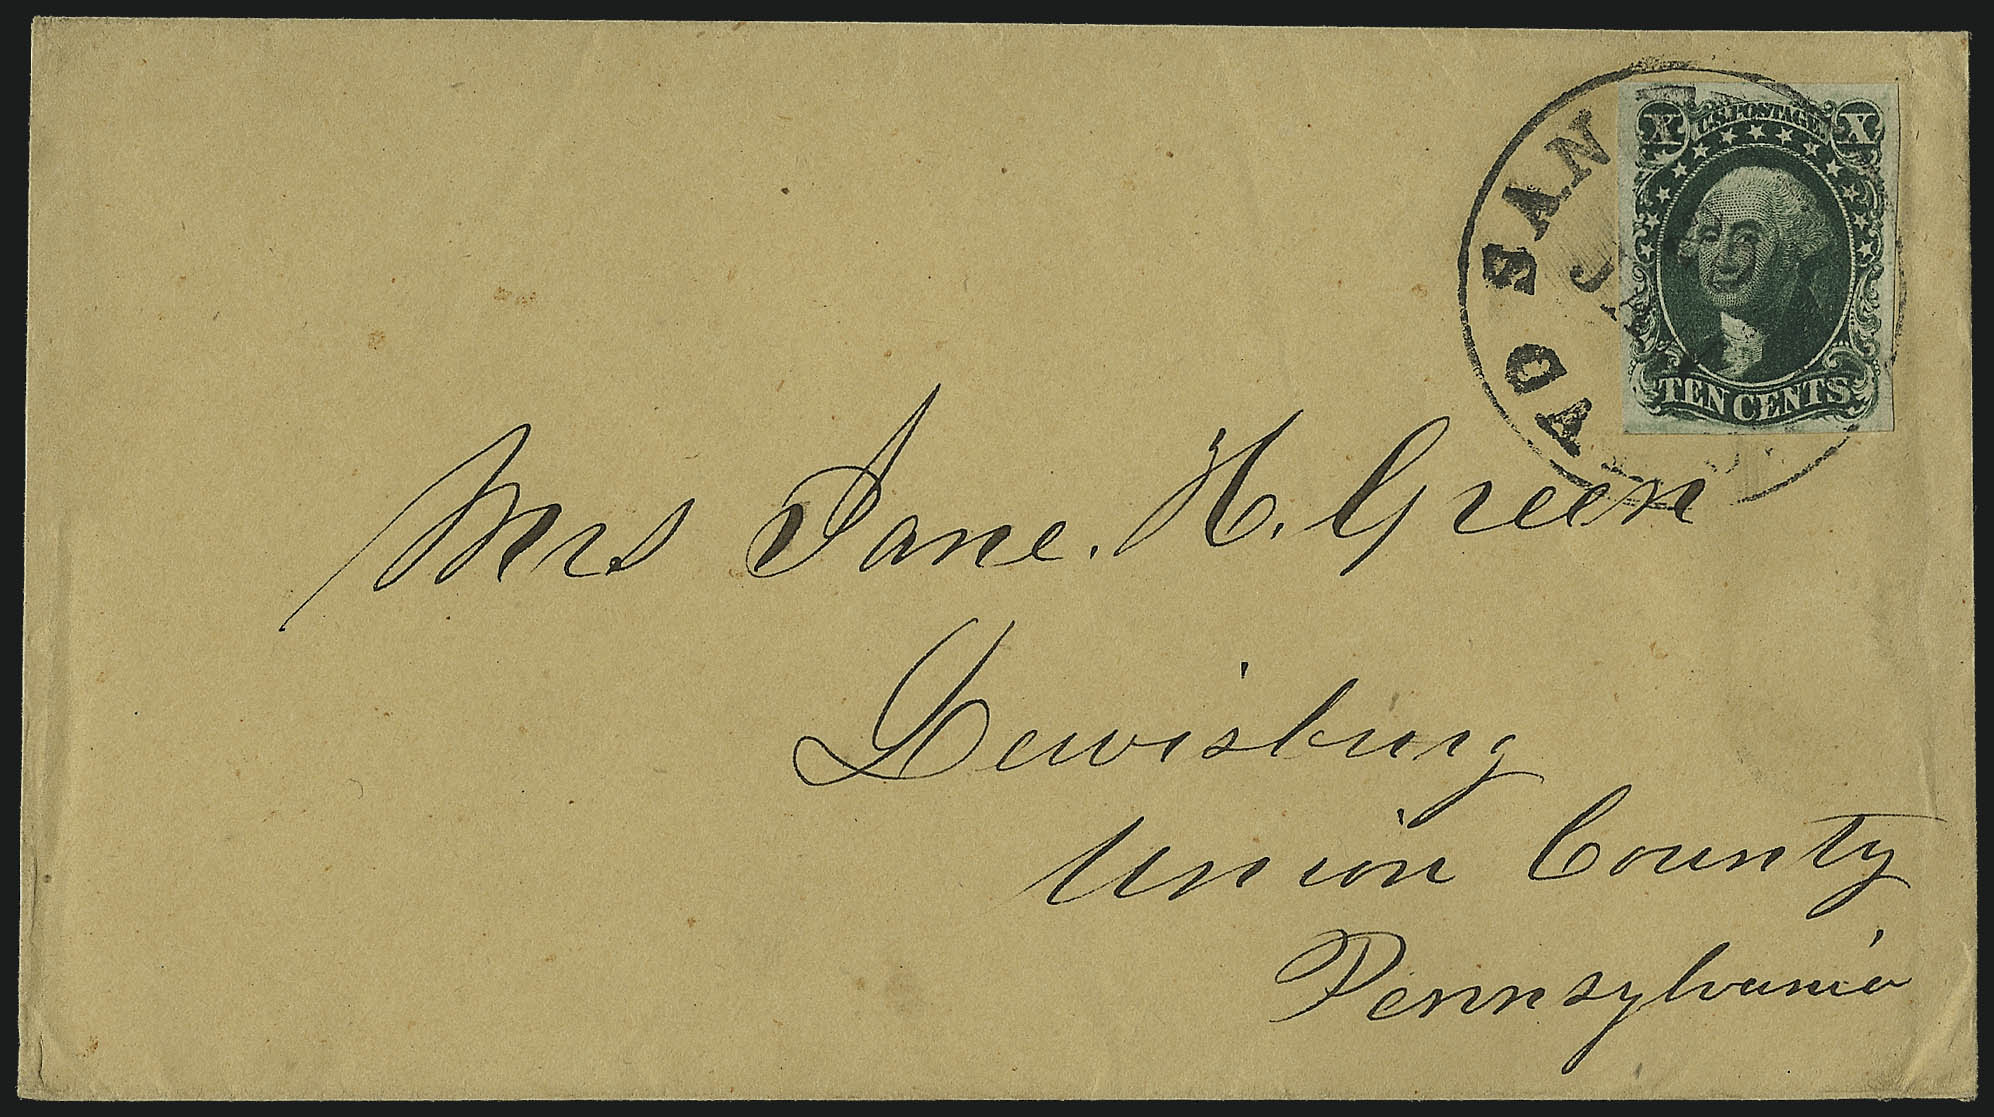 X U.S. POSTAGE. X
TEN CENTS
SAN
JA
Mrs Jane. H. Green
Lewisburg
Union County
Pennsylvania